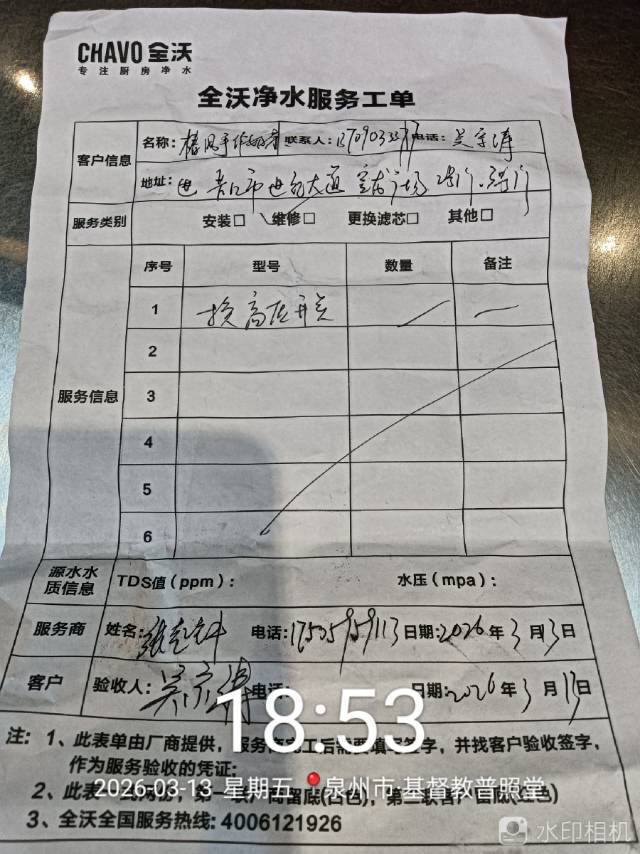 CHAVO 全沃
专注厨房净水
全沃净水服务工单
客户信息
名称: 联系人: 电话: 吴宗涛
地址:
服务类别 安装□ 维修□ 更换滤芯□ 其他□
服务信息
序号 型号 数量 备注
1 换高压开关
2
3
4
5
6
源水水质信息 TDS值(ppm): 水压(mpa):
服务商 姓名: 电话: 日期:2026年3月13日
客户 验收人:吴宗涛 电话: 日期:2026年3月13日
18:53
注: 1、此表单由厂商提供,服务 后需要填写签字,并找客户验收签字,
作为服务验收的凭证;
2026-03-13 星期五 泉州市·基督教普照堂
2、此表
3、全沃全国服务热线: 4006121926
水印相机